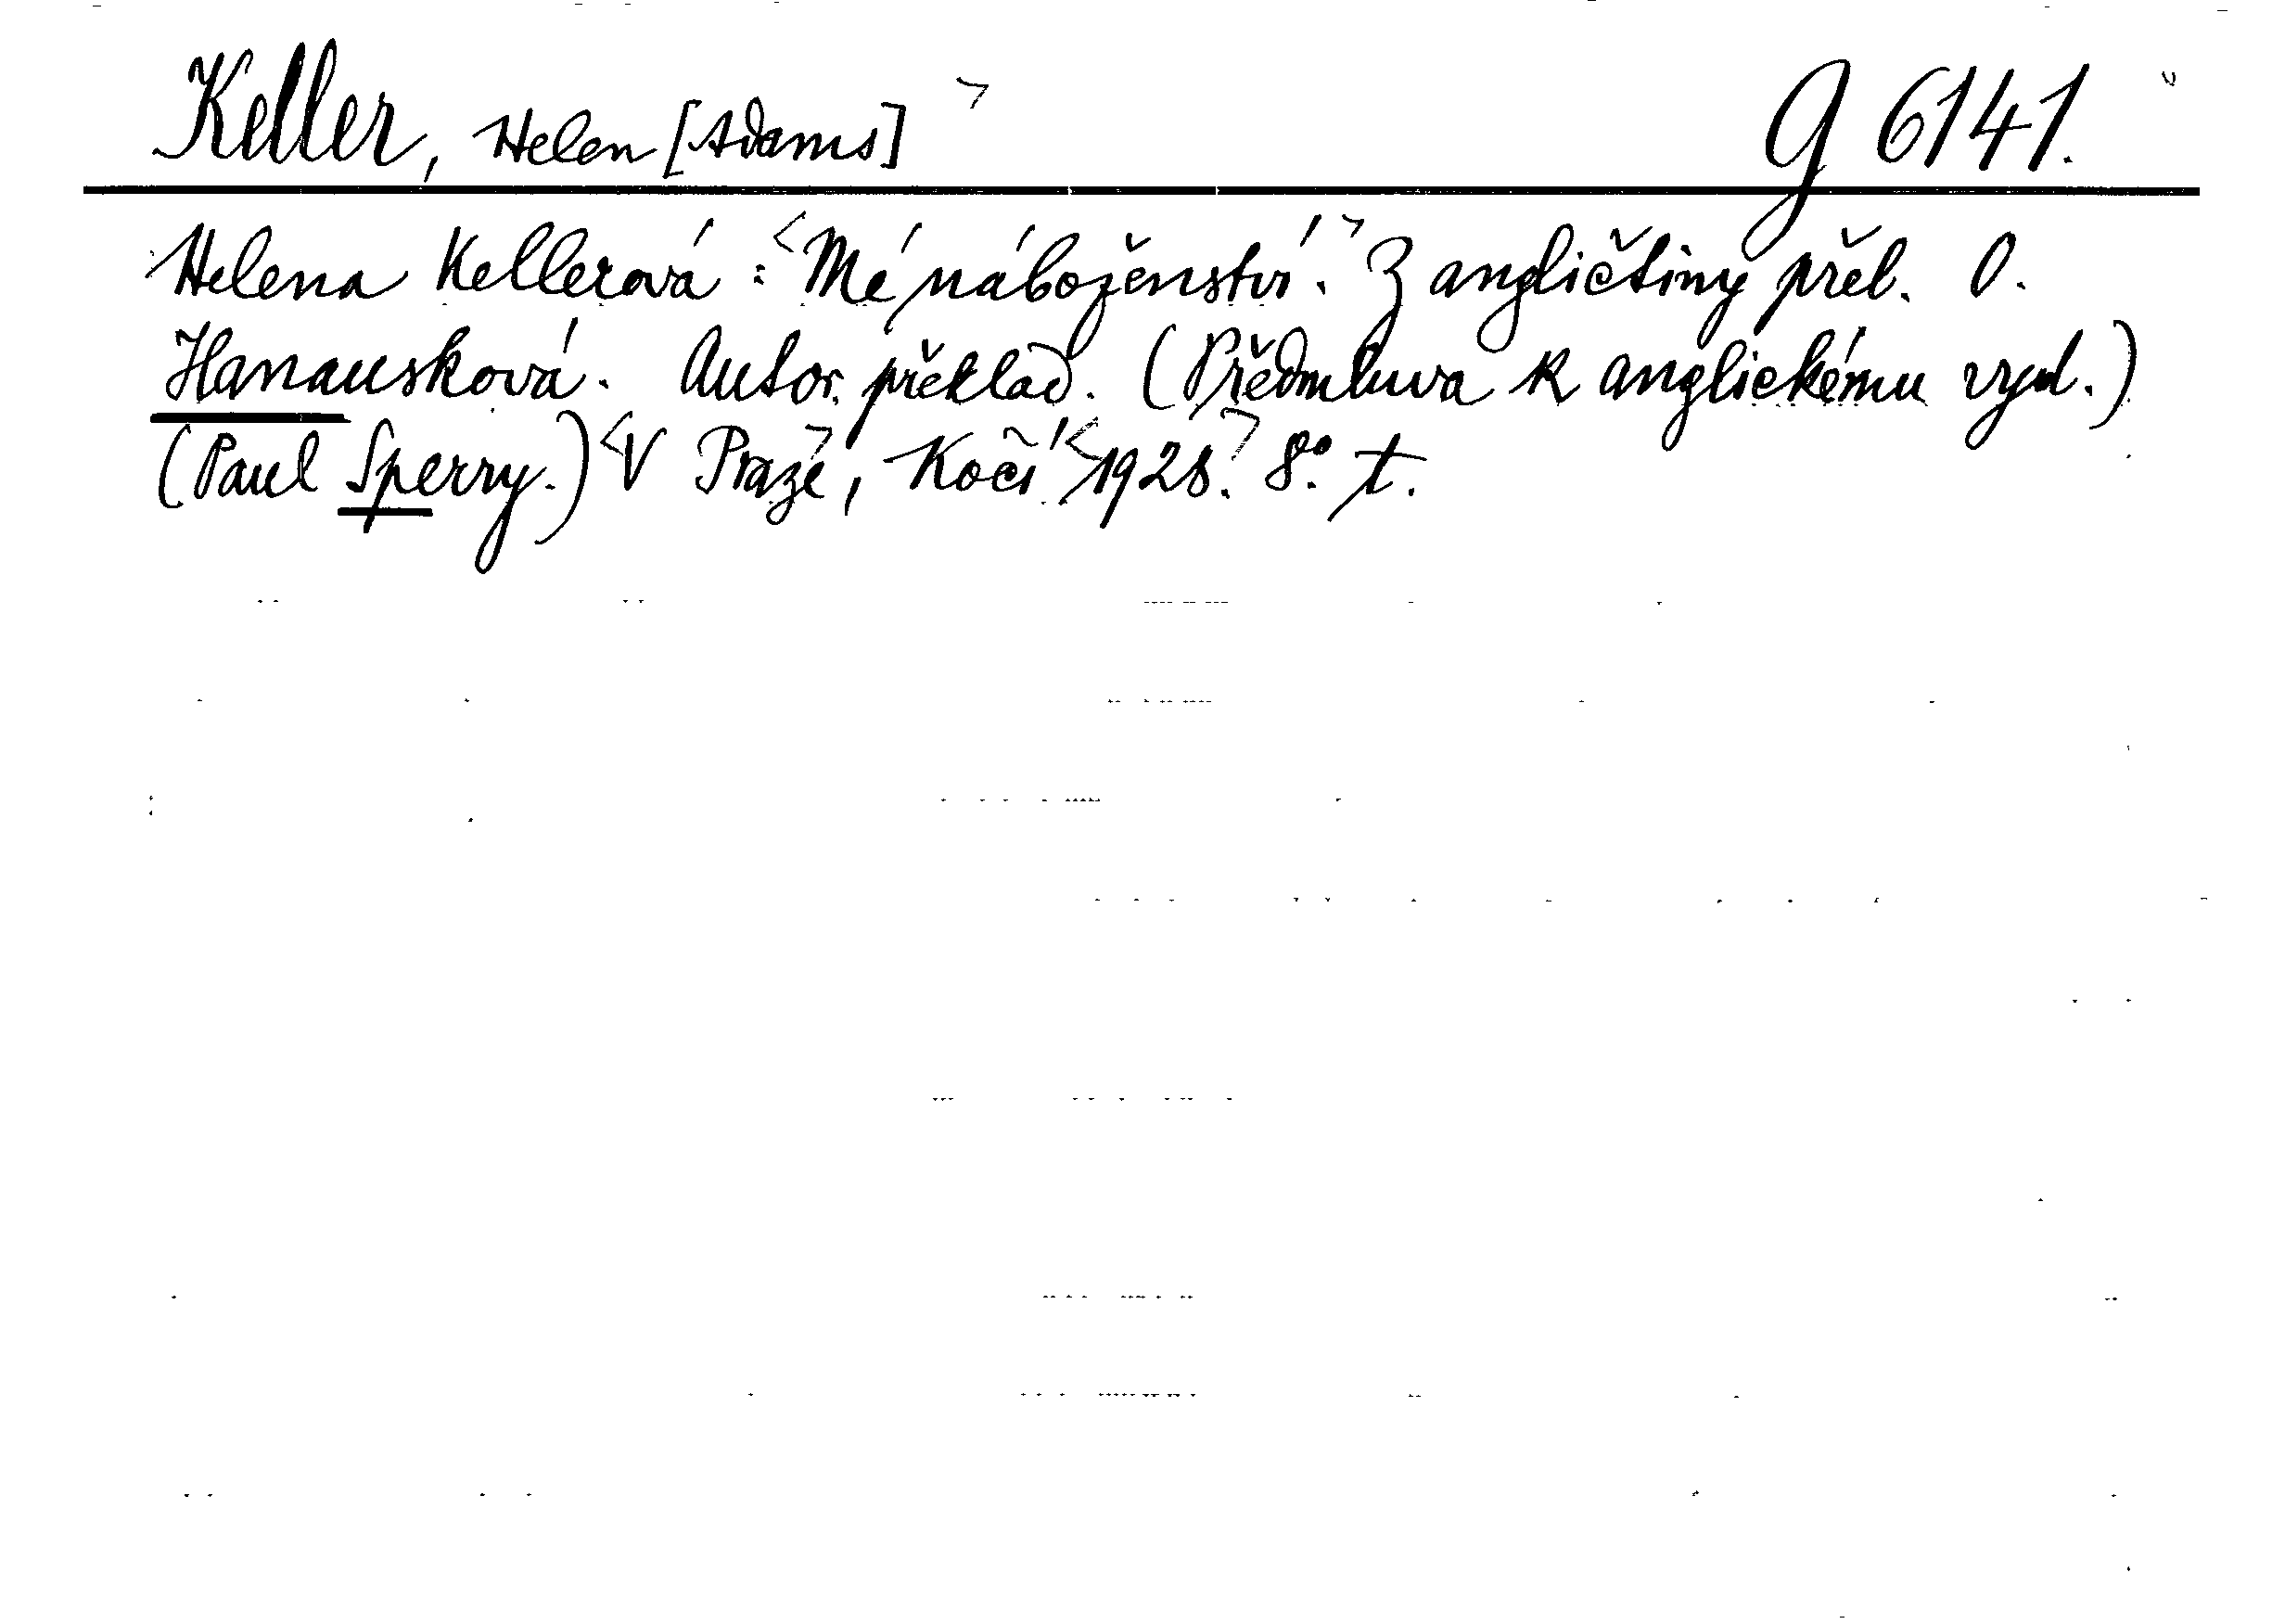 Keller, Helen [Adams] G 6141.
Helena Kellerová: Mé náboženství. Z angličtiny přel. O.
Hanausková. Autor. překlad. (Předmluva k anglickému vyd.)
(Paul Sperry.) V Praze, Kočí 1928. 8° t.